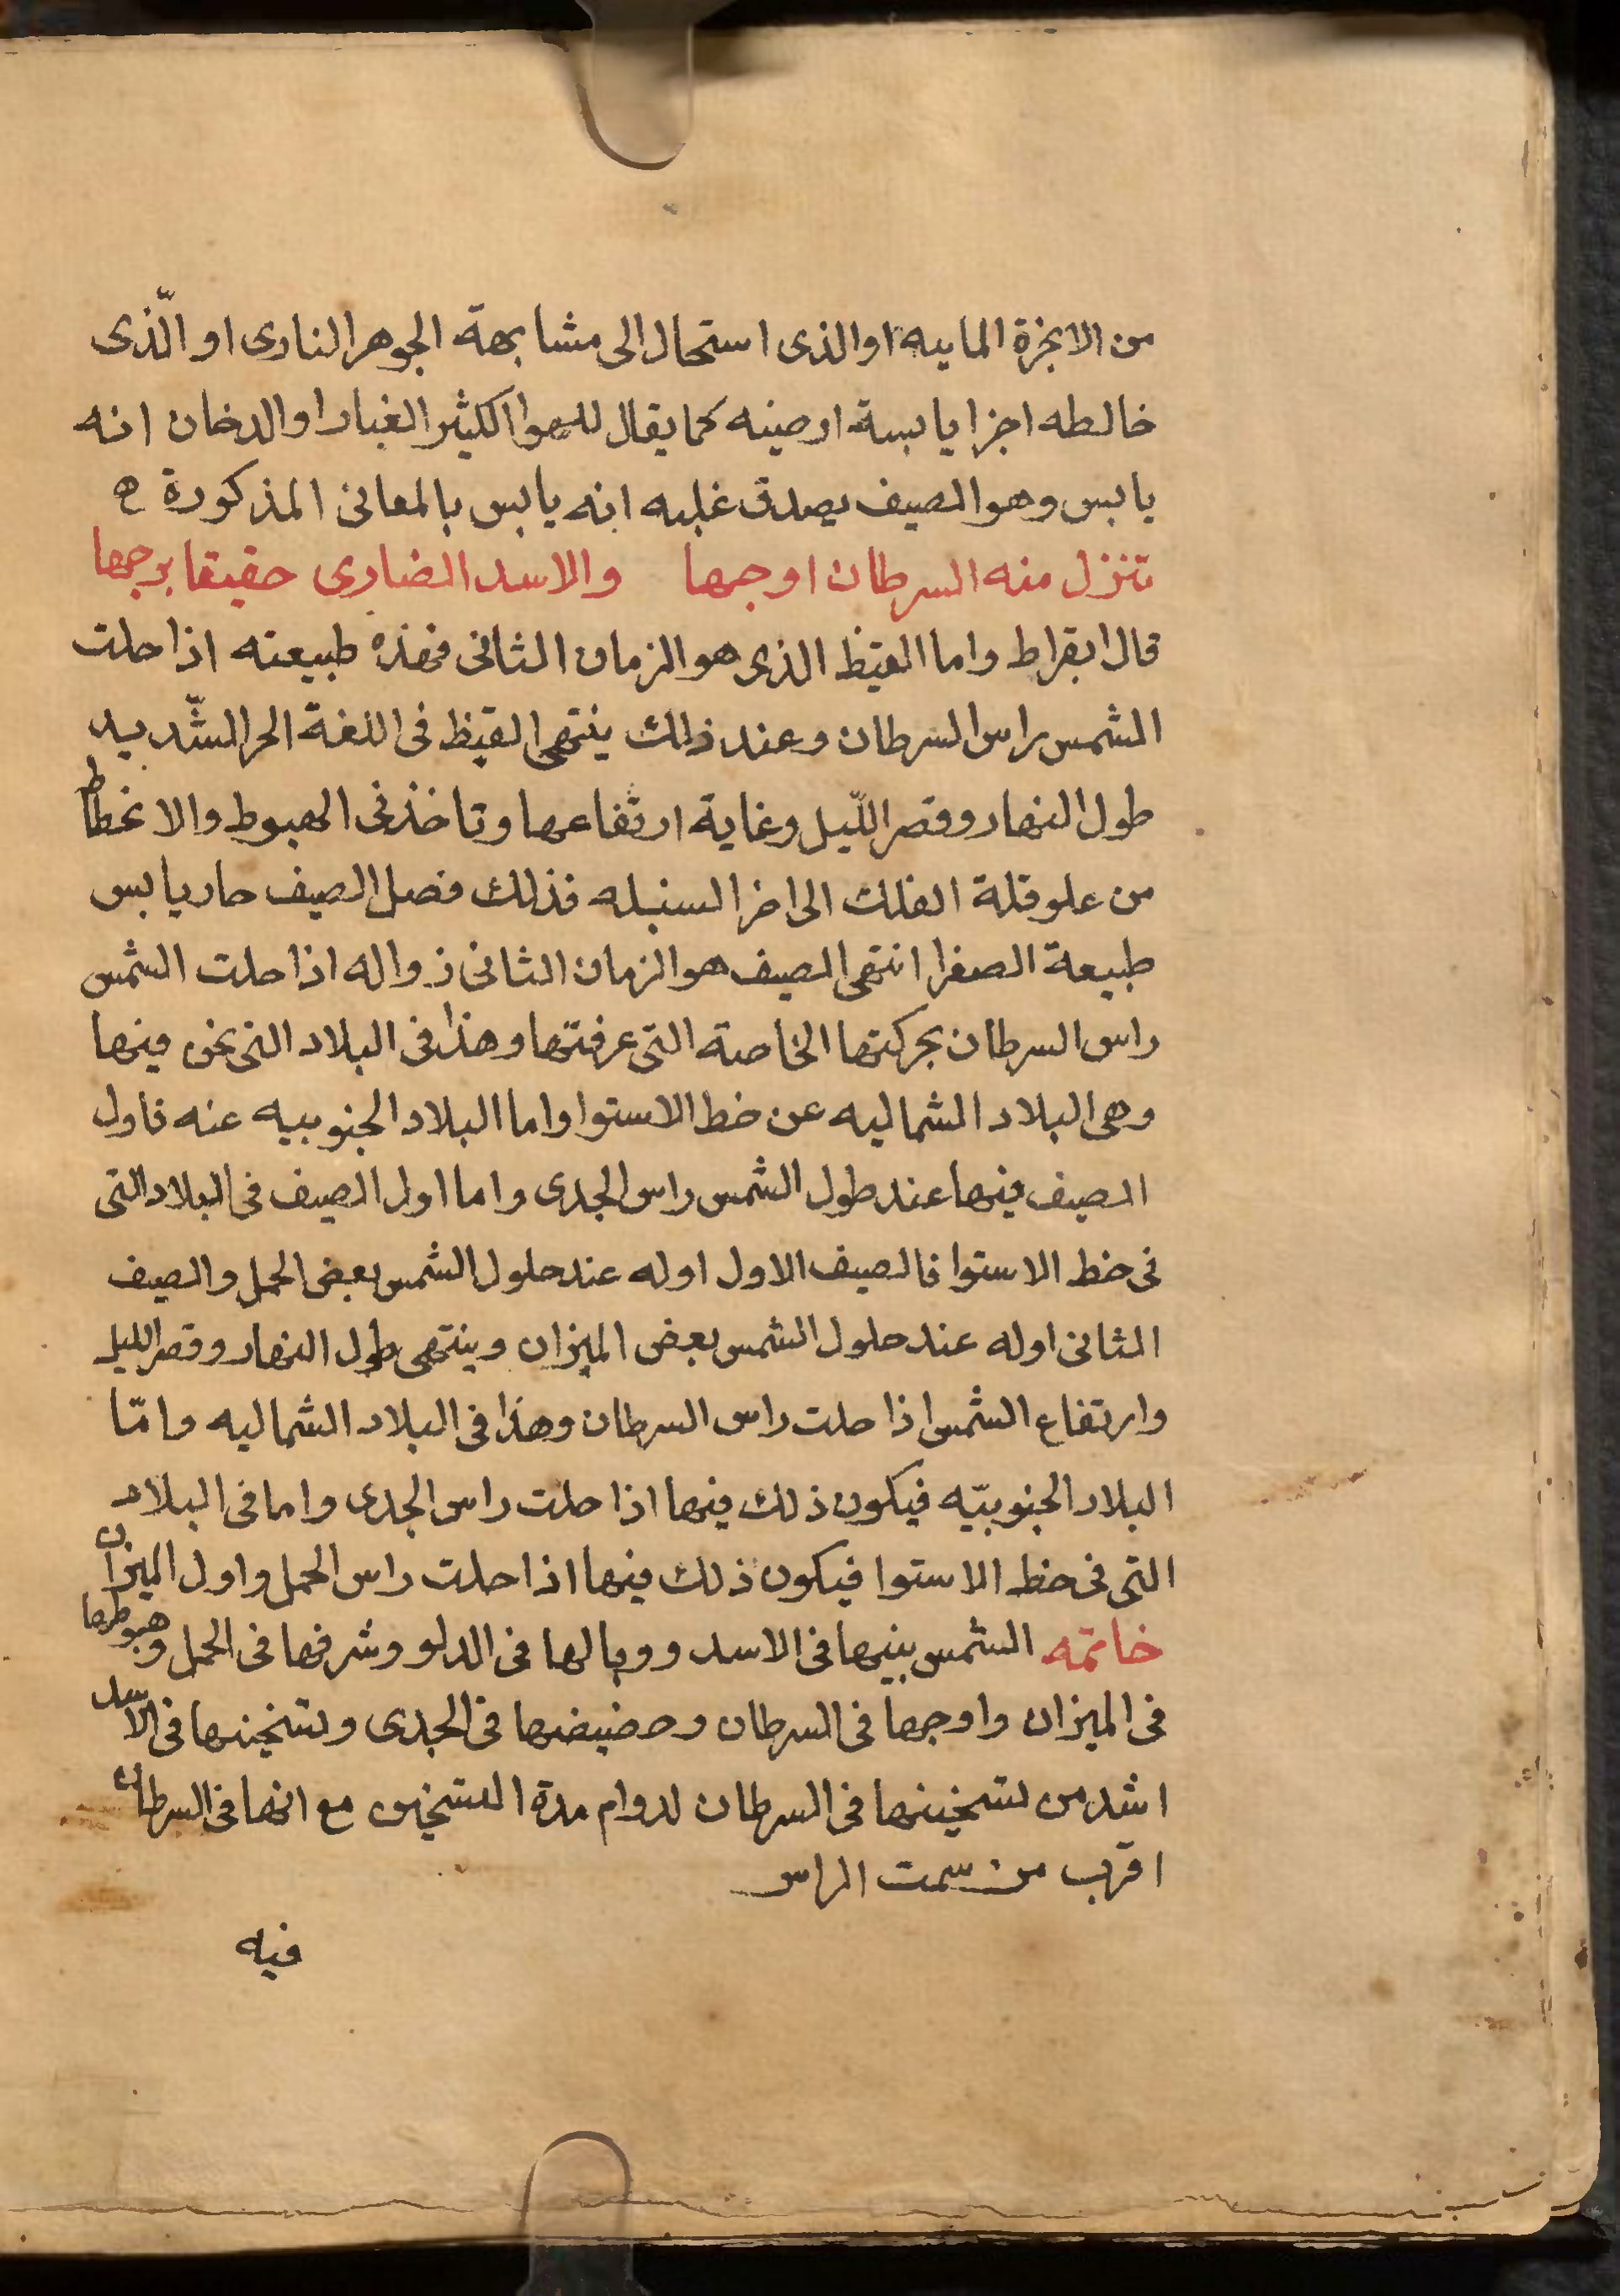 من الابخرة الماييه او الذى استحال الى مشابهة الجوهر النارى او الّذى
خالطه اجزا يابسة ارضيه كما يقال للهوا الكثير الغبار او الدخان انه
يابس وهوا الصيف يصدق عليه انه يابس بالمعانى المذكورة ه
تنزل منه السرطان اوجها والاسد الضارى حقيقا برجها
قال ابقراط واما القيظ الذى هو الزمان الثانى فهذه طبيعته اذا حلت
الشمس راس السرطان وعند ذلك ينتهى القيظ فى اللغة الحر الشّديد
طول النهار وقصر اللّيل وغاية ارتفاعها وتاخذ فى الهبوط والانحطاط
من علو قلة الفلك الى اخر السنبله فذلك فصل الصيف حار يابس
طبيعة الصفرا انتهى الصيف هو الزمان الثانى زواله اذا حلت الشمس
راس السرطان بحركتها الخاصة التى عرفتها وهذا فى البلاد التى نحن فيها
وهى البلاد الشماليه عن خط الاستوا واما البلاد الجنوبيه عنه فاول
الصيف فيها عند طول الشمس راس الجدى واما اول الصيف فى البلاد التى
فى خط الاستوا فالصيف الاول اوله عند حلول الشمس بعض الحمل والصيف
الثانى اوله عند حلول الشمس بعض الميزان وينتهى طول النهار وقصر الليل
وارتفاع الشمس اذا حلت راس السرطان وهذا فى البلاد الشماليه وامّا
البلاد الجنوبيّه فيكون ذلك فيها اذا حلت راس الجدى واما فى البلاد
التى فى خط الاستوا فيكون ذلك فيها اذا حلت راس الحمل واول الميزان
خاتمه الشمس بيتها فى الاسد ووبالها فى الدلو وشرفها فى الحمل وهبوطها
فى الميزان واوجها فى السرطان وحضيضها فى الجدى وتسخينها فى الاسد
اشد من تسخينها فى السرطان لدوام مدة التسخين مع انها فى السرطان
اقرب من سمت الراس
فيه